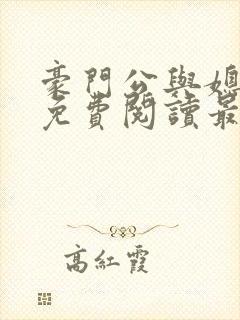 豪門公與媳
免費閱讀最
高紅霞